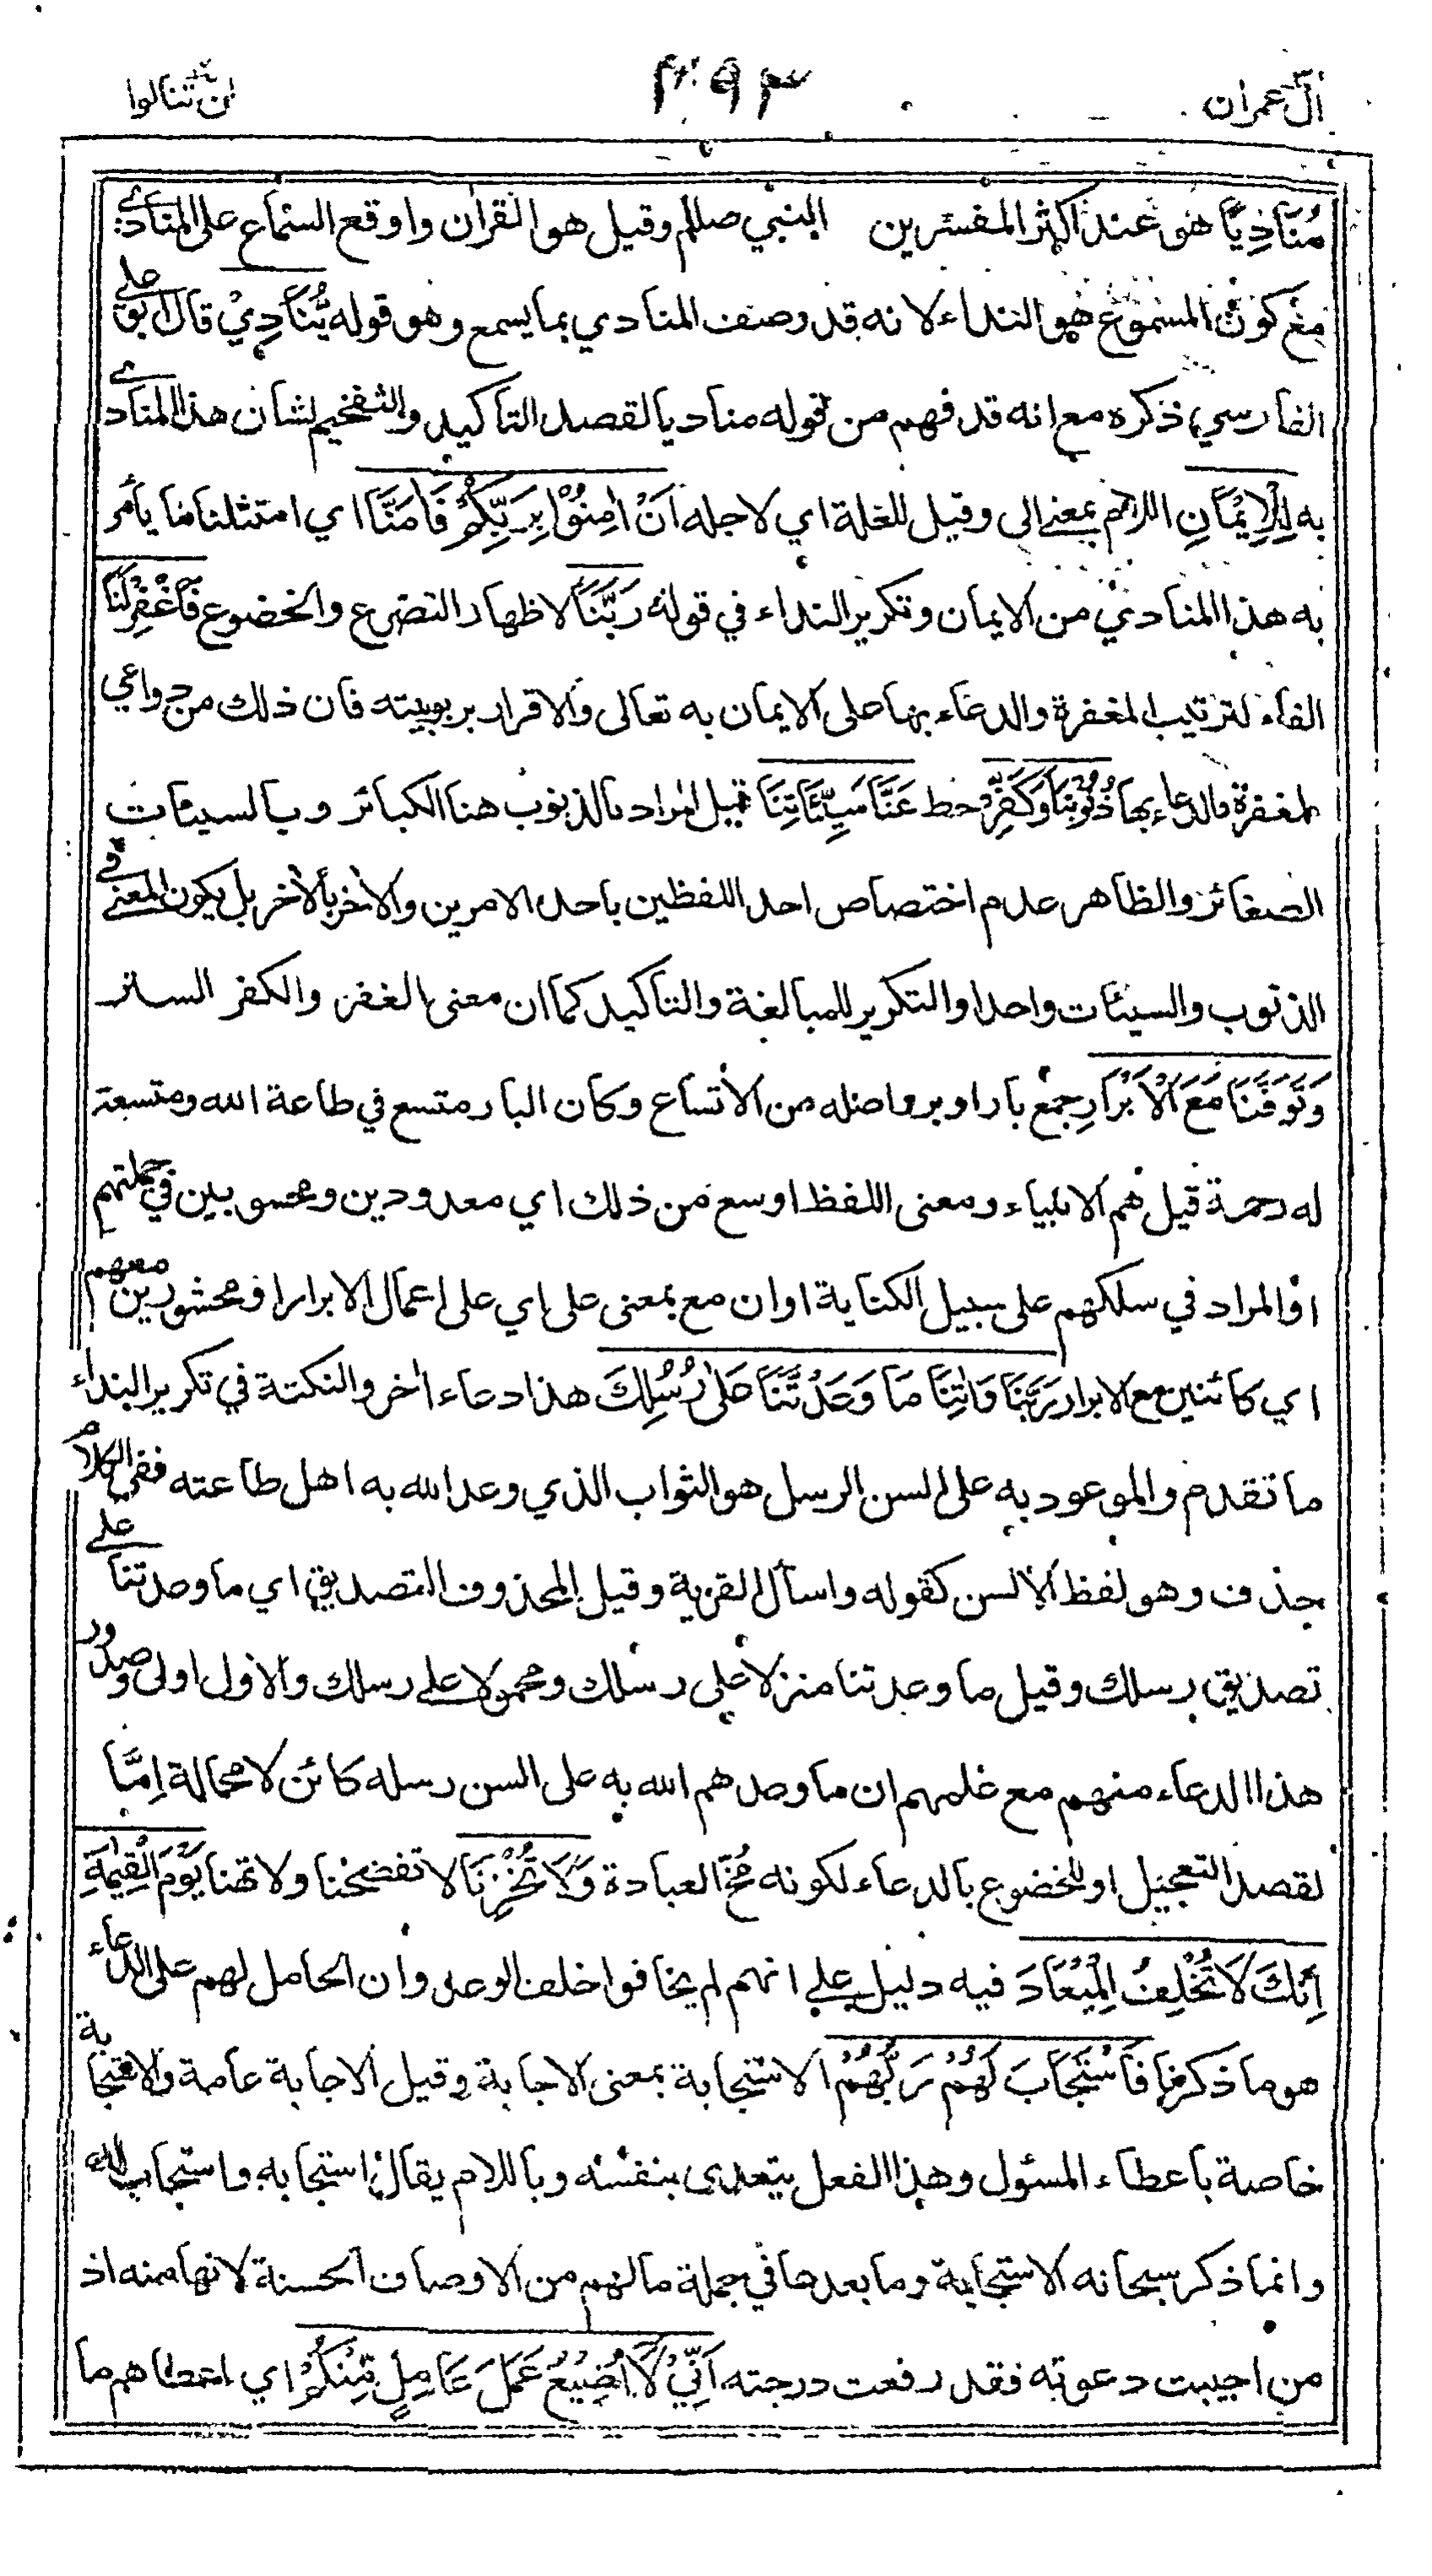 اٰل عمران
۴۹۳
لن تنالوا
مُنَادِيًا هو عند اكثر المفسرين النبي صللم وقيل هو القران واوقع السماع على المنادي
مع كون المسموع هو النداء لانه قد وصف المنادي بما يسمع وهو قوله يُّنَادِيْ قال ابو علي
الفارسي ذكره مع انه قد فهم من قوله مناديا لقصد التاكيد والتفخيم لشان هذا المنادي
به لِلْاِيْمَانِ اللام بمعنى الى وقيل للعلة اي لاجله اَنْ اٰمِنُوْا بِرَبِّكُمْ فَاٰمَنَّا اي امتثلنا ما يأمر
به هذا المنادي من الايمان وتكرير النداء في قوله رَبَّنَا لاظهار التضرع والخضوع فَاغْفِرْ لَنَا
الفاء لترتيب المغفرة والدعاء بها على الايمان به تعالى والاقرار بربوبيته فان ذلك من دواعي
المغفرة والدعاء بها ذُنُوْبَنَا وَكَفِّرْ حط عَنَّا سَيِّئَاتِنَا قيل المراد بالذنوب هنا الكبائر وبالسيئات
الصغائر والظاهر عدم اختصاص احد اللفظين باحد الامرين والاٰخر بالاٰخر بل يكون المعنى في
الذنوب والسيئات واحدا والتكرير للمبالغة والتاكيد كما ان معنى الغفر والكفر الستر
وَتَوَفَّنَا مَعَ الْاَبْرَارِ جمع بار او بر واصله من الاتساع وكان البار متسع في طاعة الله ومتسعة
له رحمة قيل هم الانبياء ومعنى اللفظ اوسع من ذلك اي معدودين ومحسوبين في جملتهم
او المراد في سلكهم على سبيل الكناية او ان مع بمعنى على اي على اعمال الابرار او محشورين معهم
اي كائنين مع الابرار رَبَّنَا وَاٰتِنَا مَا وَعَدْتَّنَا عَلٰى رُسُلِكَ هذا دعاء اٰخر والنكتة في تكرير النداء
ما تقدم والموعود به على السن الرسل هو الثواب الذي وعد الله به اهل طاعته ففي الكلام
حذف وهو لفظ الالسن كقوله واسأل القرية وقيل المحذوف التصديق اي ما وعدتنا على
تصديق رسلك وقيل ما وعدتنا منزلا على رسلك ومحمولا على رسلك والاول اولى وصدور
هذا الدعاء منهم مع علمهم ان ما وعدهم الله به على السن رسله كائن لا محالة اِمَّا
لقصد التعجيل او للخضوع بالدعاء لكونه مُخّ العبادة وَلَا تُخْزِنَا لا تفضحنا ولا تهنا يَوْمَ الْقِيٰمَةِ
اِنَّكَ لَا تُخْلِفُ الْمِيْعَادَ فيه دليل على انهم لم يخافوا خلف الوعد وان الحامل لهم على الدعاء
هو ما ذكرنا فَاسْتَجَابَ لَهُمْ رَبُّهُمْ الاستجابة بمعنى الاجابة وقيل الاجابة عامة والاستجابة
خاصة باعطاء المسئول وهذا الفعل يتعدى بنفسه وباللام يقال استجابه واستجاب له
وانما ذكر سبحانه الاستجابة وما بعدها في جملة ما لهم من الاوصاف الحسنة لانها منه اذ
من اجيبت دعوته فقد رفعت درجته اَنِّيْ لَا اُضِيْعُ عَمَلَ عَامِلٍ مِّنْكُمْ اي اعطاهم ما